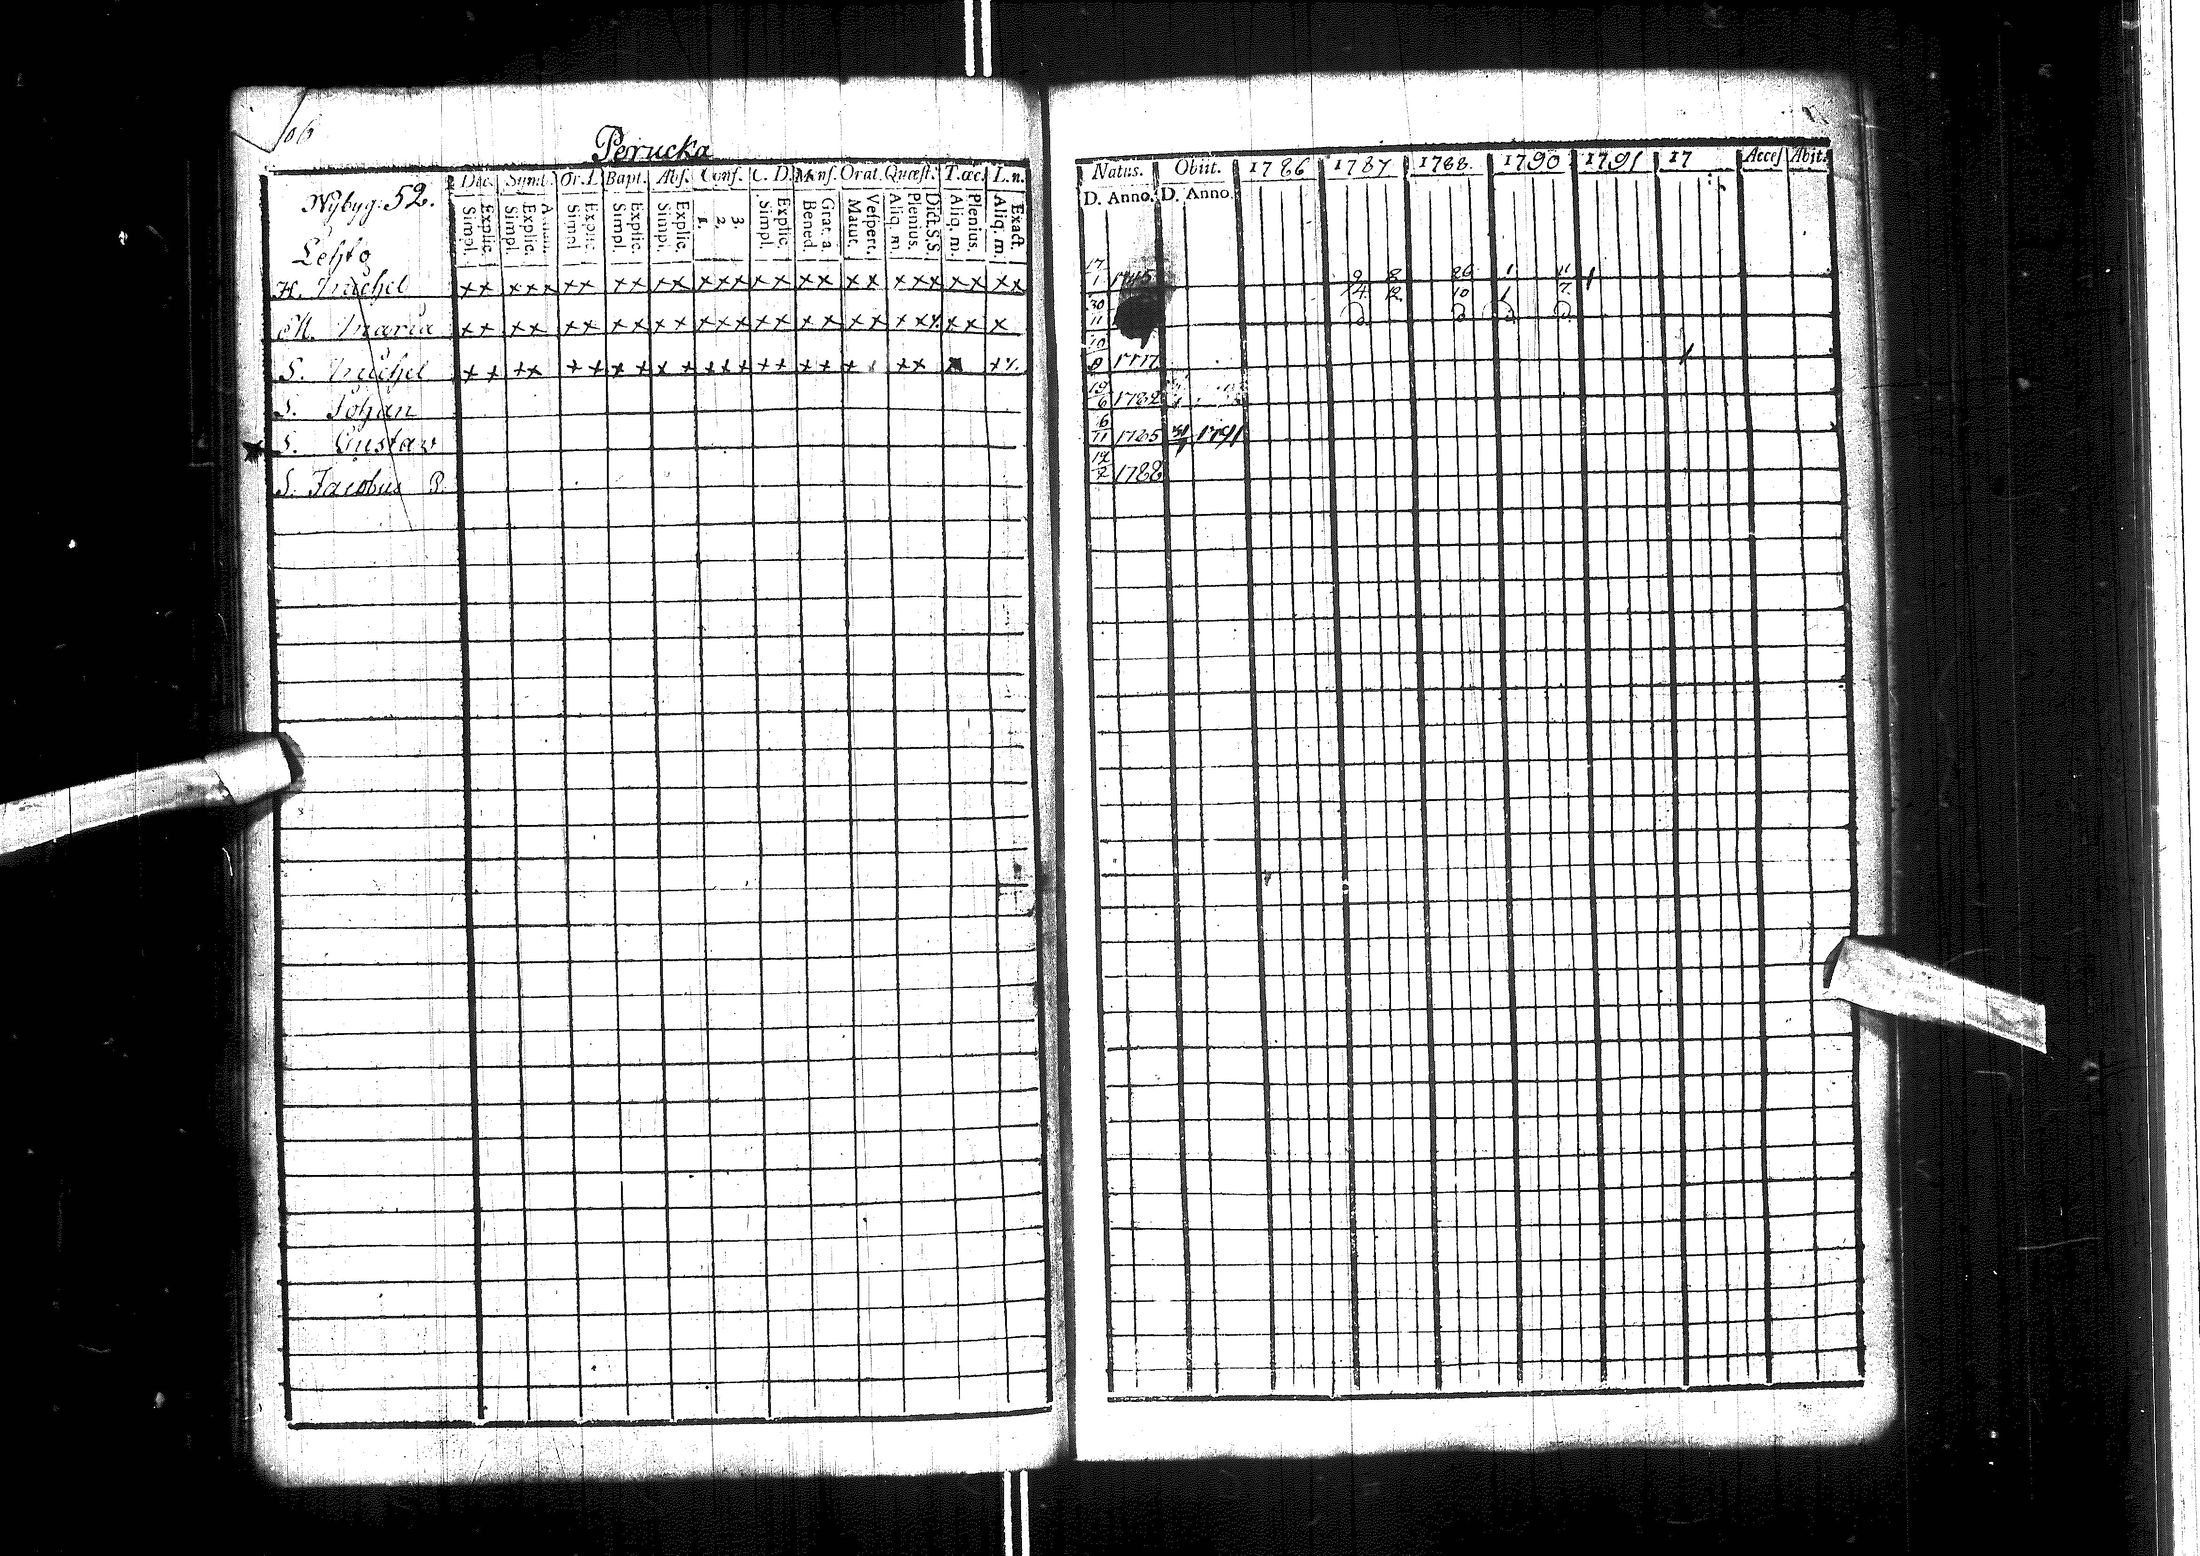 106
Perucka
Nybyg: 52.
Dec. Symb. Or. D. Bapt. Abs. Conf. C. D. Mens. Orat. Quæst. T. œc. L. n.
Simpl. Explic. Simpl. Explic. Athan. Simpl. Explic. Simpl. Explic. Simpl. Explic. 1. 2. 3. Simpl. Explic. Bened. Grat. a. Matut. Vespert. Aliq. m. Plenius. Dict. S.S. Aliq. m. Plenius. Aliq. m. Exact.
Lehto
H. Michel
M. Maria
S. Michel
S. Johan
S. Gustav
S. Jacobus P.
Natus. Obiit. 1786 1787 1788. 1790 1791 17 Acces Abit.
D. Anno. D. Anno.
17/1 1745 9 8 26 1 11
30/11 24 12 10 1 7
10/8 1777
19/6 1782
6/11 1785 1791
12/2 1788